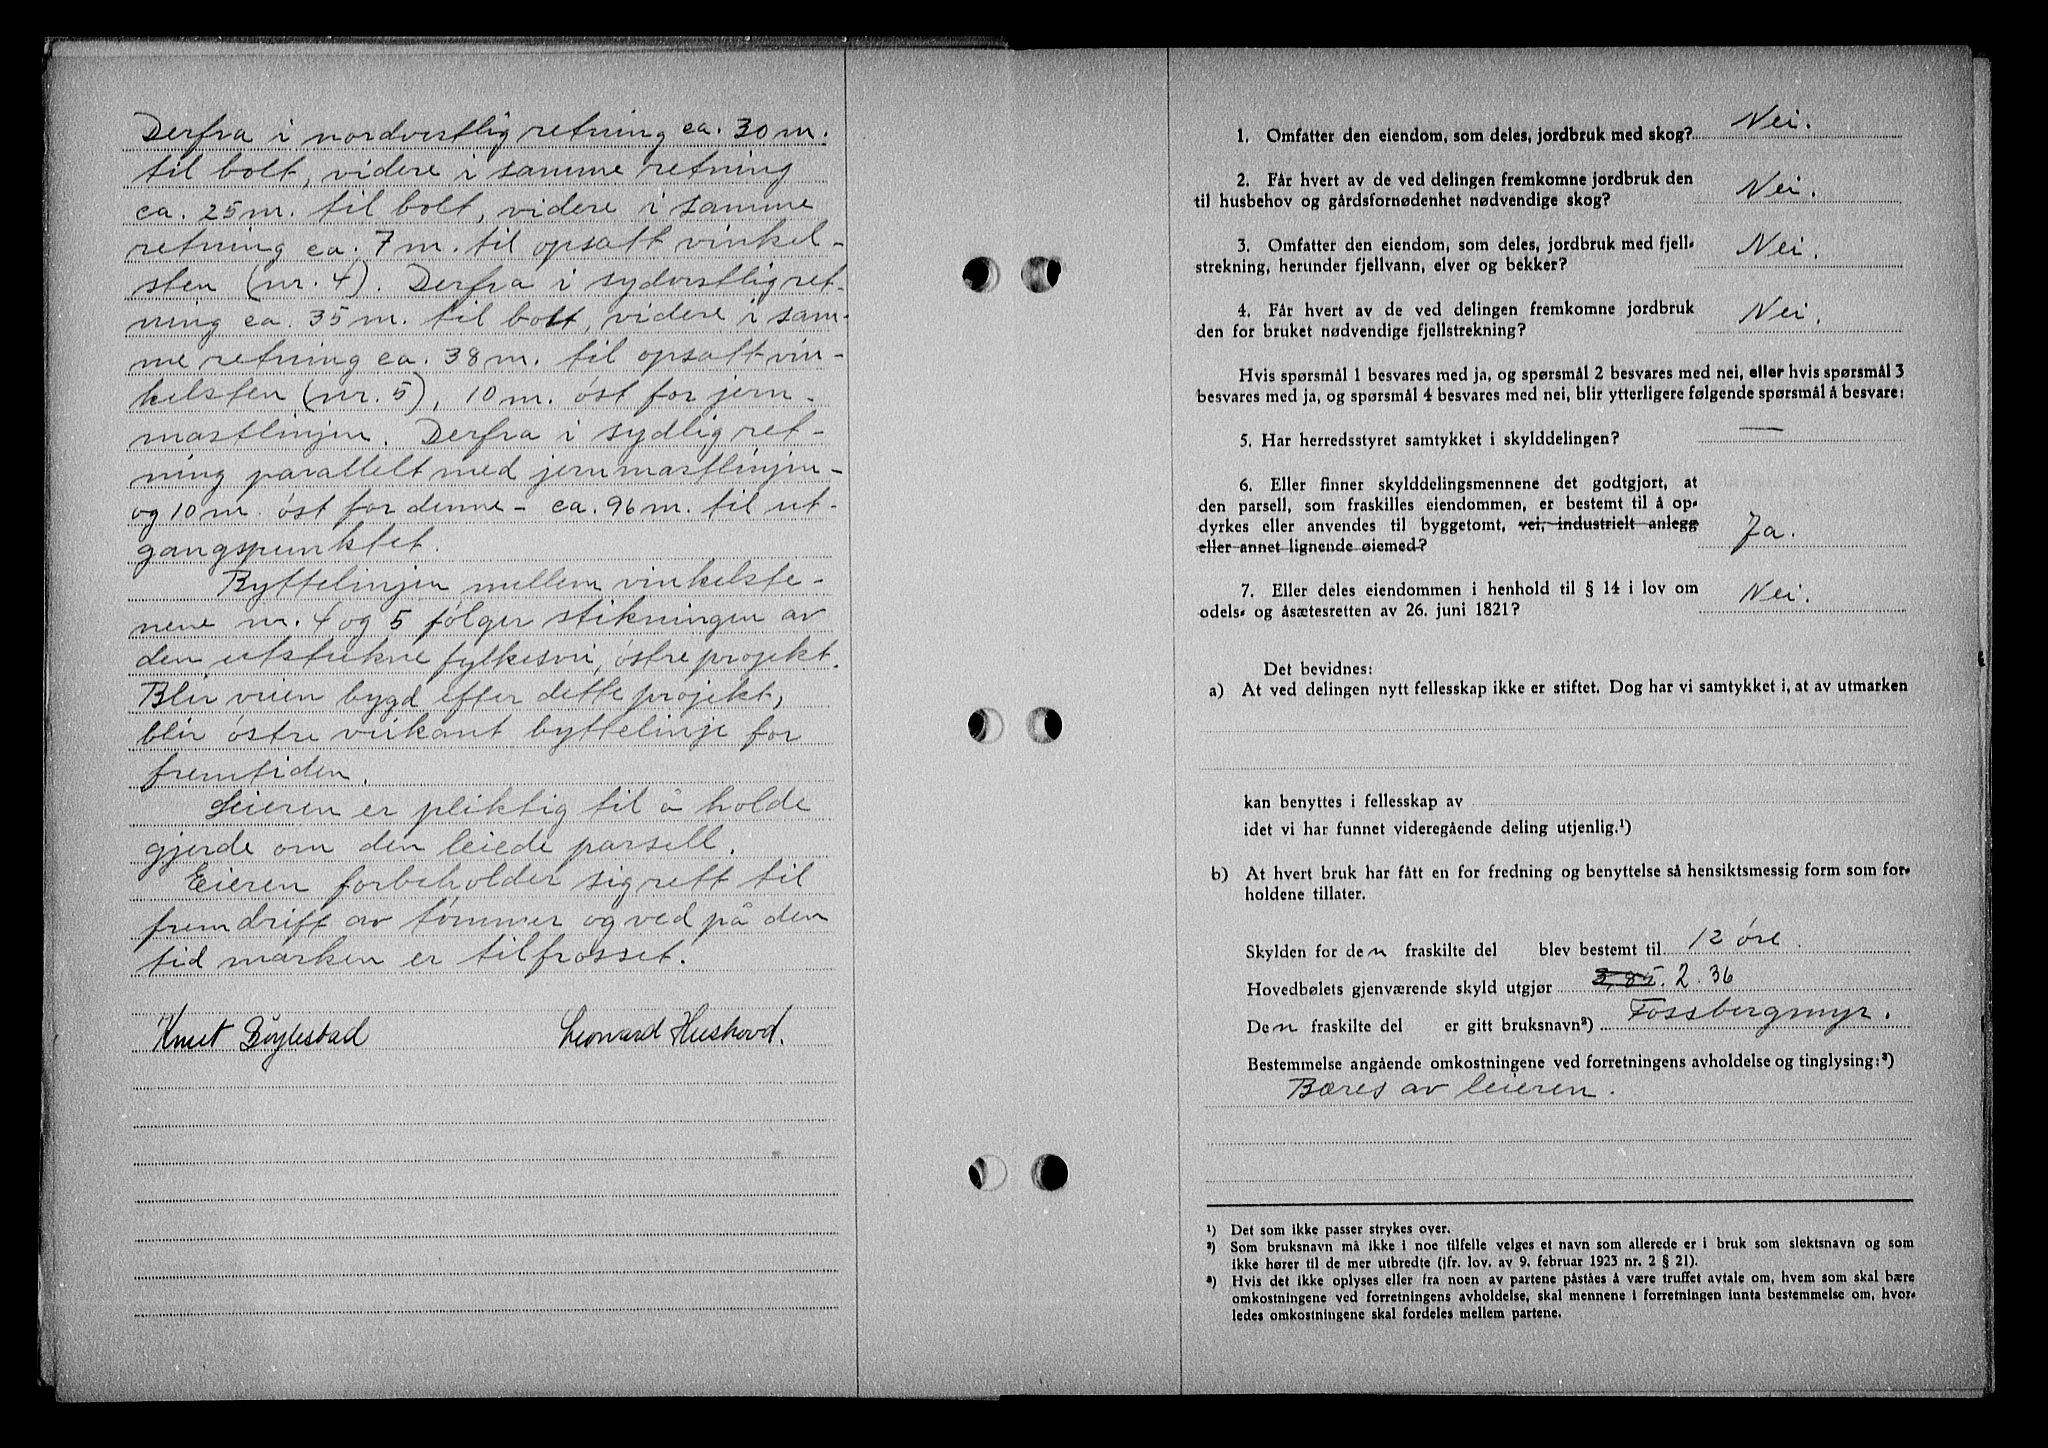 Derfra i nordvestlig retning ca. 30 m.
til bolt, videre i samme retning
ca. 25 m. til bolt, videre i samme
retning ca. 7 m. til opsatt vinkel-
sten (nr. 4). Derfra i sydvestlig ret-
ning ca. 35 m. til bolt, videre i sam-
me retning ca. 38 m. til opsatt vin-
kelsten (nr. 5), 10 m. øst for jern-
mastlinjen. Derfra i sydlig ret-
ning parallelt med jernmastlinjen -
og 10 m. øst for denne - ca. 96 m. til ut-
gangspunktet.
Byttelinjen mellem vinkelste-
nene nr. 4 og 5 følger stikningen av
den utstukne fylkesvei, østre projekt.
Blir veien bygd efter dette projekt,
blir østre veikant byttelinje for
fremtiden.
Leieren er pliktig til å holde
gjerde om den leiede parsell.
Eieren forbeholder sig rett til
fremdrift av tømmer og ved på den
tid marken er tilfrosset.
Knut Bøylestad Leonard Huskovd.
1. Omfatter den eiendom, som deles, jordbruk med skog? Nei.
2. Får hvert av de ved delingen fremkomne jordbruk den
til husbehov og gårdsfornødenhet nødvendige skog? Nei.
3. Omfatter den eiendom, som deles, jordbruk med fjell-
strekning, herunder fjellvann, elver og bekker? Nei.
4. Får hvert av de ved delingen fremkomne jordbruk
den for bruket nødvendige fjellstrekning? Nei.
Hvis spørsmål 1 besvares med ja, og spørsmål 2 besvares med nei, eller hvis spørsmål 3
besvares med ja, og spørsmål 4 besvares med nei, blir ytterligere følgende spørsmål å besvare:
5. Har herredsstyret samtykket i skylddelingen? —
6. Eller finner skylddelingsmennene det godtgjort, at
den parsell, som fraskilles eiendommen, er bestemt til å op-
dyrkes eller anvendes til byggetomt, vei, industrielt anlegg
eller annet lignende øiemed? Ja.
7. Eller deles eiendommen i henhold til § 14 i lov om
odels- og åsætesretten av 26. juni 1821? Nei.
Det bevidnes:
a) At ved delingen nytt fellesskap ikke er stiftet. Dog har vi samtykket i, at av utmarken
kan benyttes i fellesskap av
idet vi har funnet videregående deling utjenlig.¹)
b) At hvert bruk har fått en for fredning og benyttelse så hensiktsmessig form som for-
holdene tillater.
Skylden for den fraskilte del blev bestemt til 12 øre.
Hovedbølets gjenværende skyld utgjør 3,85. 2.36
Den fraskilte del er gitt bruksnavn²) Fossbergsmyr.
Bestemmelse angående omkostningene ved forretningens avholdelse og tinglysing:³)
Bæres av leieren.
¹) Det som ikke passer strykes over.
²) Som bruksnavn må ikke i noe tilfelle velges et navn som allerede er i bruk som slektsnavn og som
ikke hører til de mer utbredte (jfr. lov. av 9. februar 1923 nr. 2 § 21).
³) Hvis det ikke oplyses eller fra noen av partene påståes å være truffet avtale om, hvem som skal bære
omkostningene ved forretningens avholdelse, skal mennene i forretningen innta bestemmelse om, hvor-
ledes omkostningene skal fordeles mellem partene.